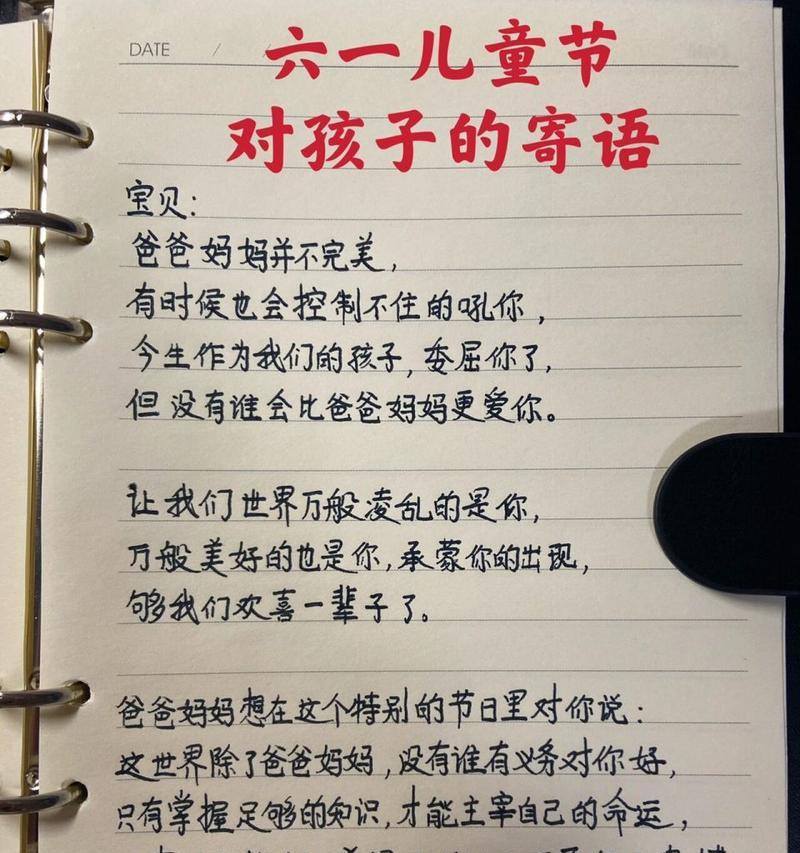 DATE / /
六一儿童节
对孩子的寄语
宝贝：
爸爸妈妈并不完美，
有时候也会控制不住的吼你，
今生作为我们的孩子，委屈你了，
但没有谁会比爸爸妈妈更爱你。
让我们世界万般凌乱的是你，
万般美好的也是你，承蒙你的出现，
够我们欢喜一辈子了。
爸爸妈妈想在这个特别的节日里对你说：
这世界除了爸爸妈妈，没有谁有义务对你好，
只有掌握足够的知识，才能主宰自己的命运，